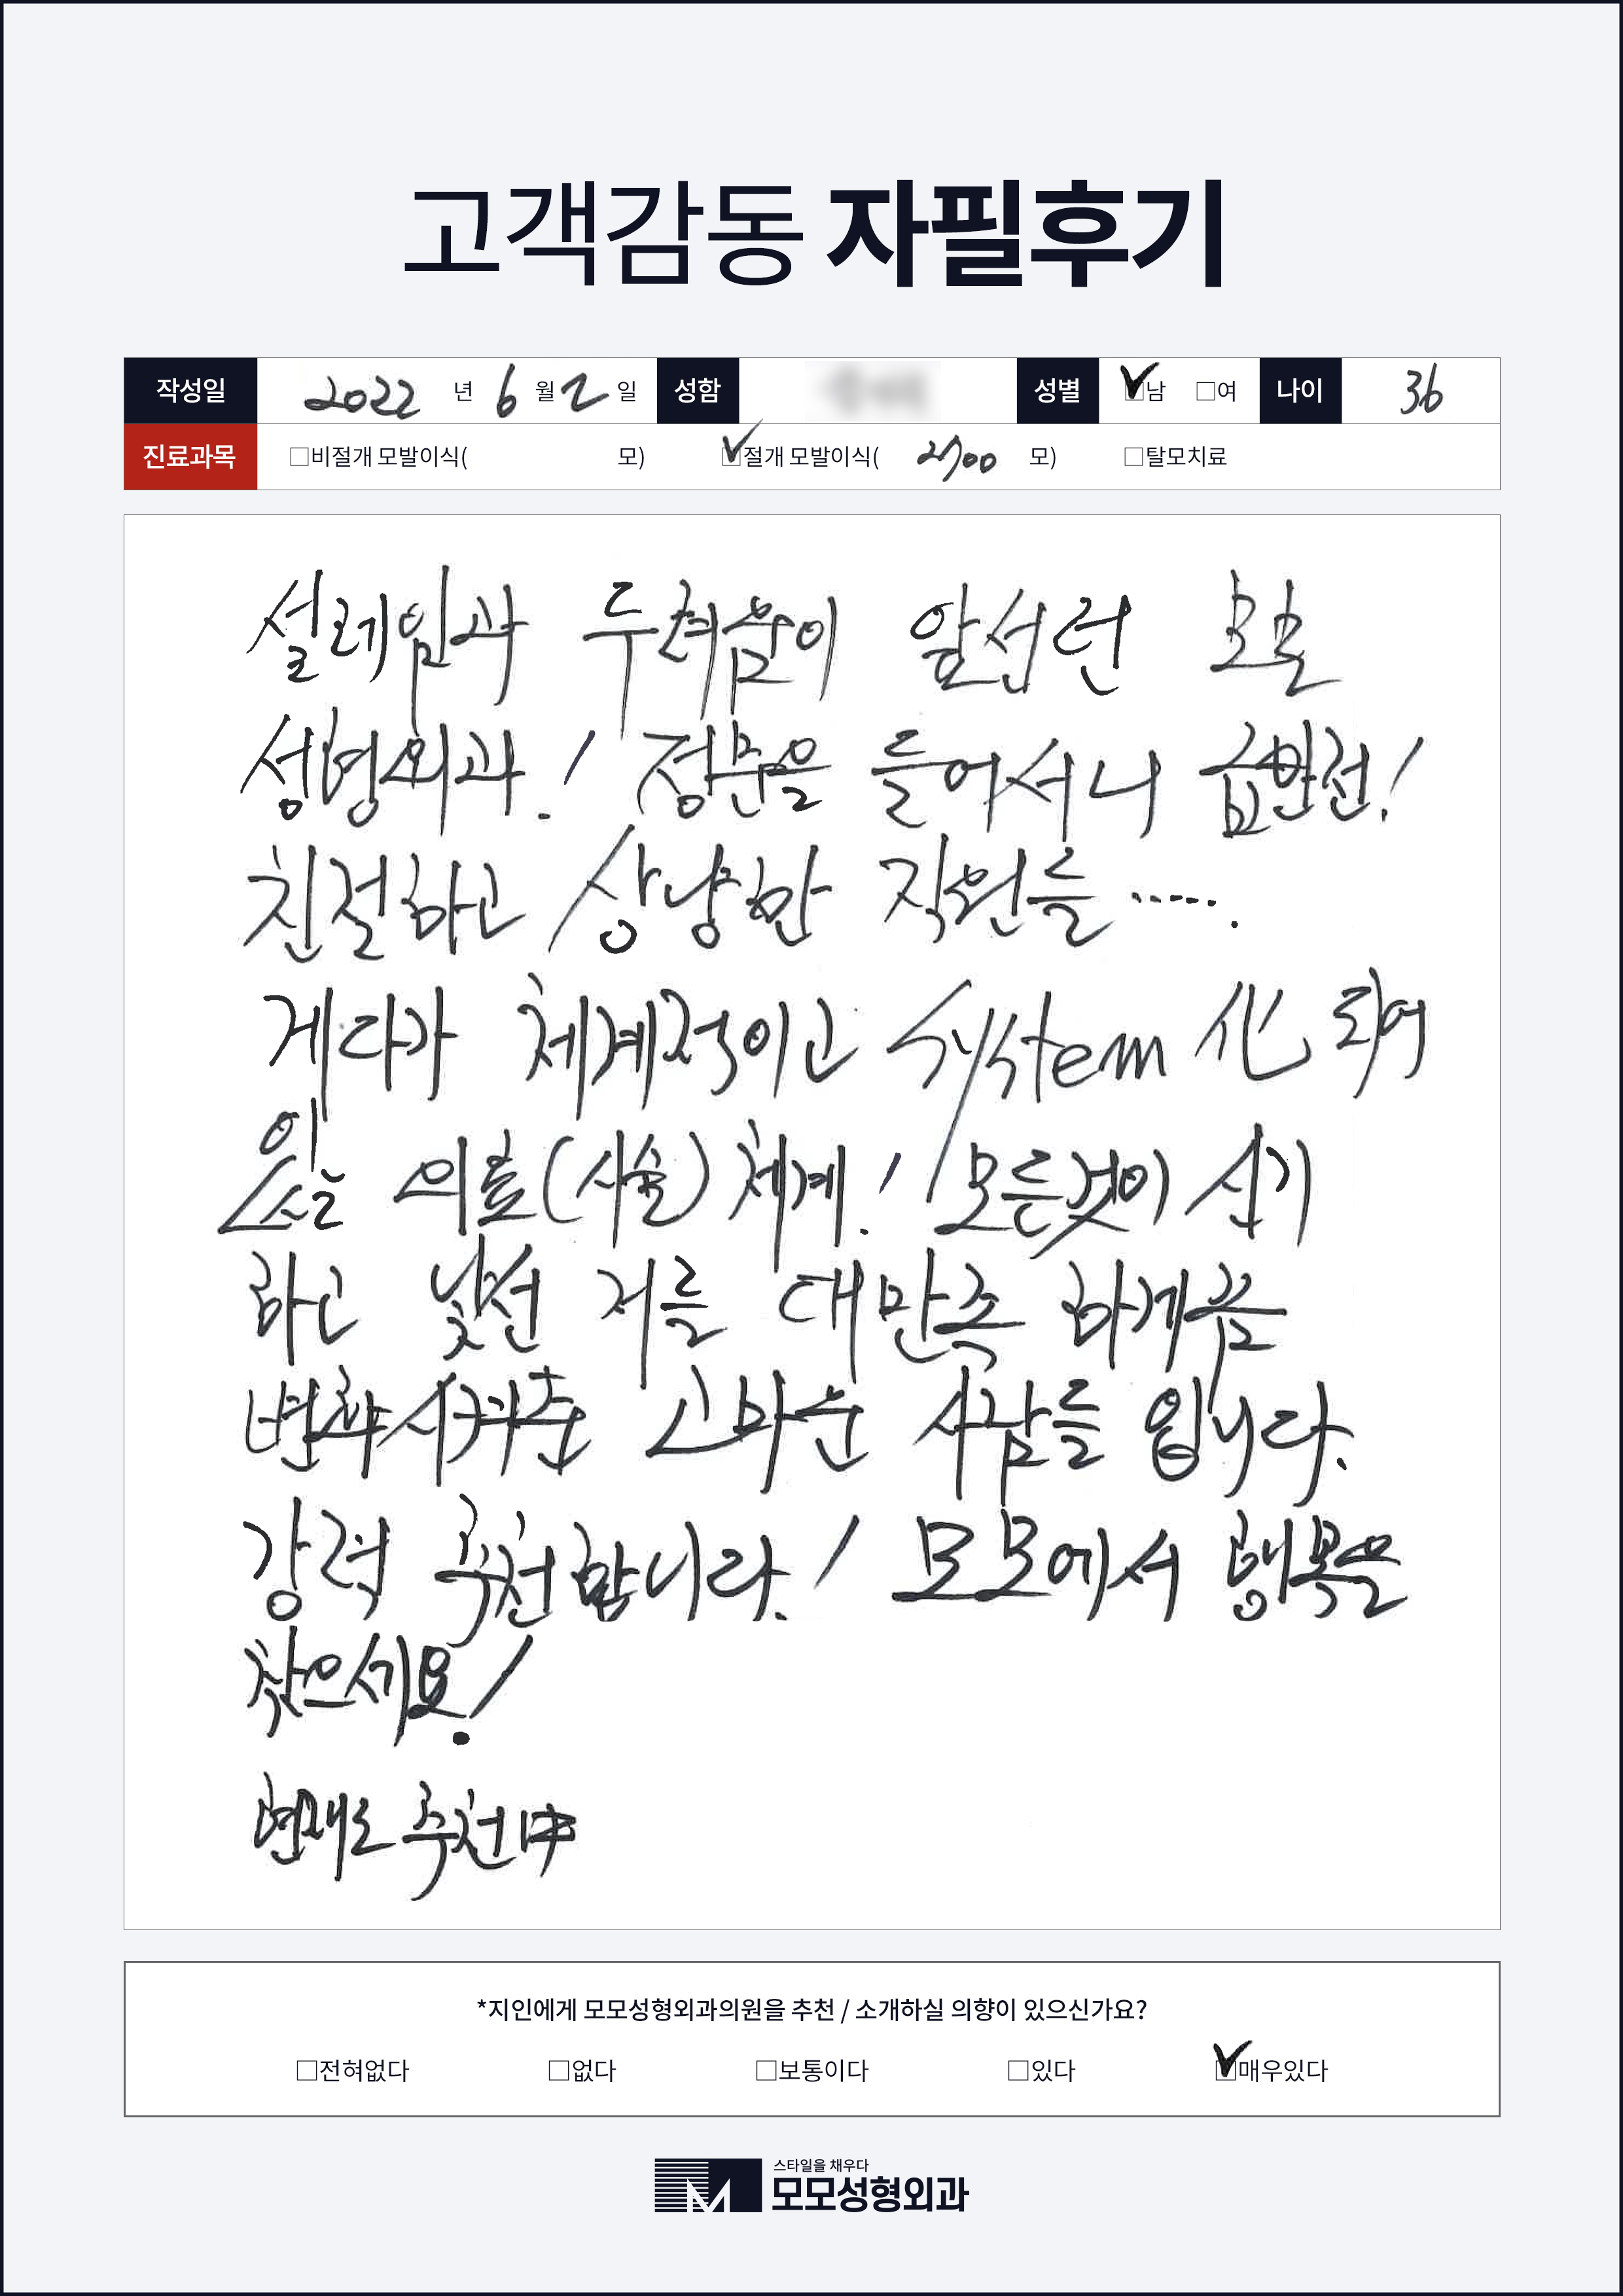 고객감동 자필후기
작성일 2022 년 6 월 2 일 성함 성별 ☑남 □여 나이 36
진료과목 □비절개 모발이식( 모) ☑절개 모발이식( 2700 모) □탈모치료
설레임과 두려움이 앞섰던 모모
성형외과! 정문을 들어서니 급반전!
친절하고 상냥한 직원들 ......
게다가 체계적이고 system 化 되어
있는 의료(시술)체계! 모든것이 신기
하고 낯선 저를 대만족 하게끔
변화시켜준 고마운 사람들 입니다.
강력 추천합니다! 모모에서 행복을
찾으세요!
현재도 추천中
*지인에게 모모성형외과의원을 추천 / 소개하실 의향이 있으신가요?
□전혀없다 □없다 □보통이다 □있다 ☑매우있다
스타일을 채우다
모모성형외과